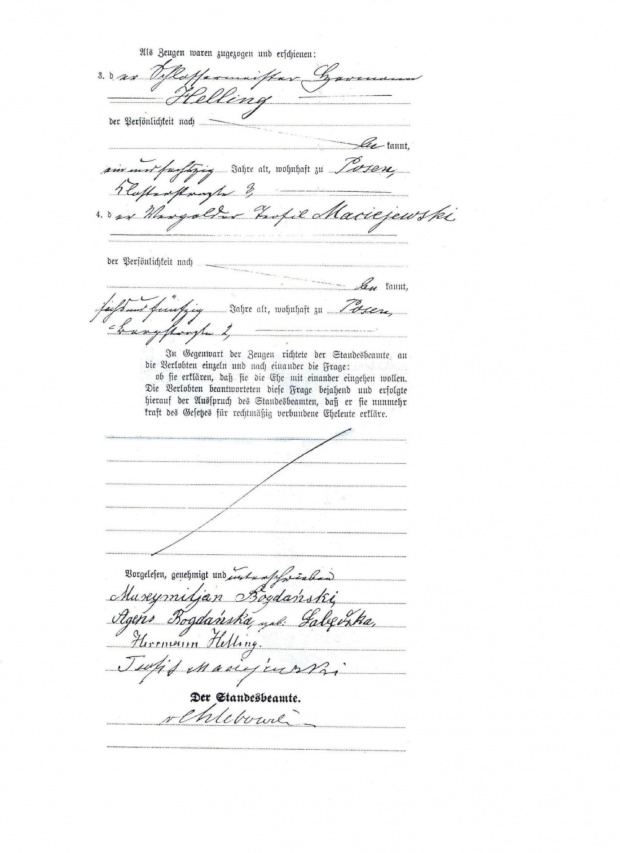 Als Zeugen waren zugezogen und erschienen:
3. der Schlossermeister Hermann
Helling
der Persönlichkeit nach
be kannt,
ein und sechzig Jahre alt, wohnhaft zu Posen,
Klosterstraße
4. der Vergolder Teofil Maciejewski
der Persönlichkeit nach
be kannt,
sechs und fünfzig Jahre alt, wohnhaft zu Posen,
Bergstraße 2,
In Gegenwart der Zeugen richtete der Standesbeamte an
die Verlobten einzeln und nach einander die Frage:
ob sie erklären, daß sie die Ehe mit einander eingehen wollen.
Die Verlobten beantworteten diese Frage bejahend und erfolgte
hierauf der Ausspruch des Standesbeamten, daß er sie nunmehr
kraft des Gesetzes für rechtmäßig verbundene Eheleute erkläre.
Vorgelesen, genehmigt und unterschrieben
Maxymiljan Bogdański,
Agnes Bogdańska, geb.
Herrmann Helling.
Teofil Maciejewski
Der Standesbeamte.